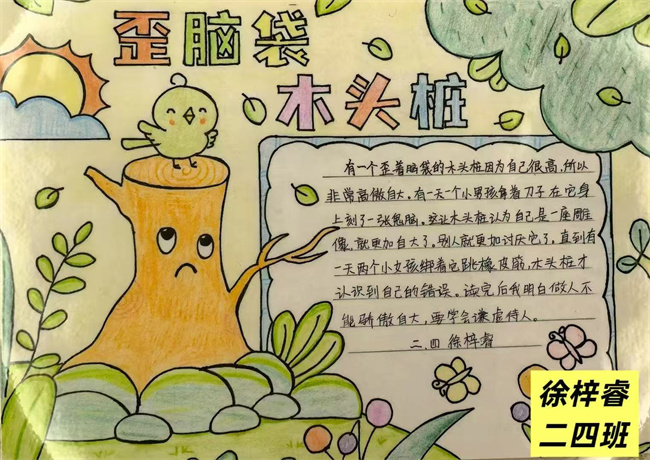 歪脑袋
木头桩
有一个歪着脑袋的木头桩因为自己很高,所以
非常高傲自大。有一天一个小男孩拿着刀子在它身
上刻了一张鬼脸。这让木头桩认为自己是一座雕
像,就更加自大了,别人就更加讨厌它了。直到有
一天两个小女孩绑着它跳橡皮筋,木头桩才
认识到自己的错误。读完后我明白做人不
能骄傲自大,要学会谦虚待人。
二.四 徐梓睿
徐梓睿
二四班